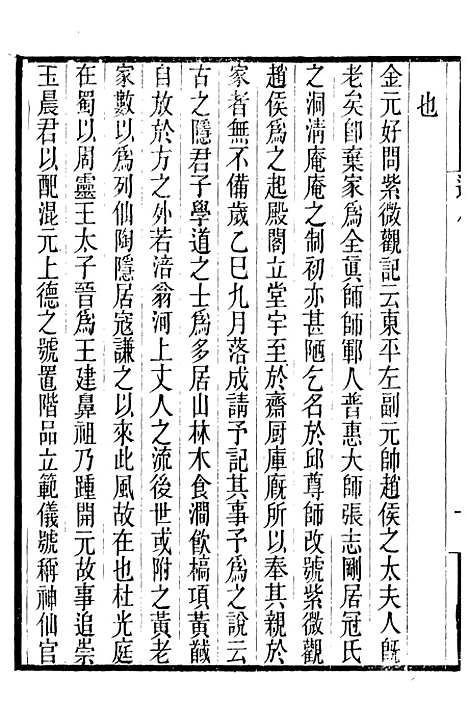 也
金元好問紫微觀記云東平左副元帥趙侯之太夫人旣
老矣卽棄家爲全眞師師鄆人普惠大師張志剛居冠氏
之洞淸庵庵之制初亦甚陋乞名於邱尊師改號紫微觀
趙侯爲之起殿閣立堂宇至於齋厨庫廐所以奉其親於
家者無不備歲乙巳九月落成請予記其事予爲之說云
古之隱君子學道之士爲多居山林木食澗飮槁項黃馘
自放於方之外若涪翁河上丈人之流後世或附之黃老
家數以爲列仙陶隱居寇謙之以來此風故在也杜光庭
在蜀以周靈王太子晉爲王建鼻祖乃踵開元故事追崇
玉晨君以配混元上德之號置階品立範儀號稱神仙官